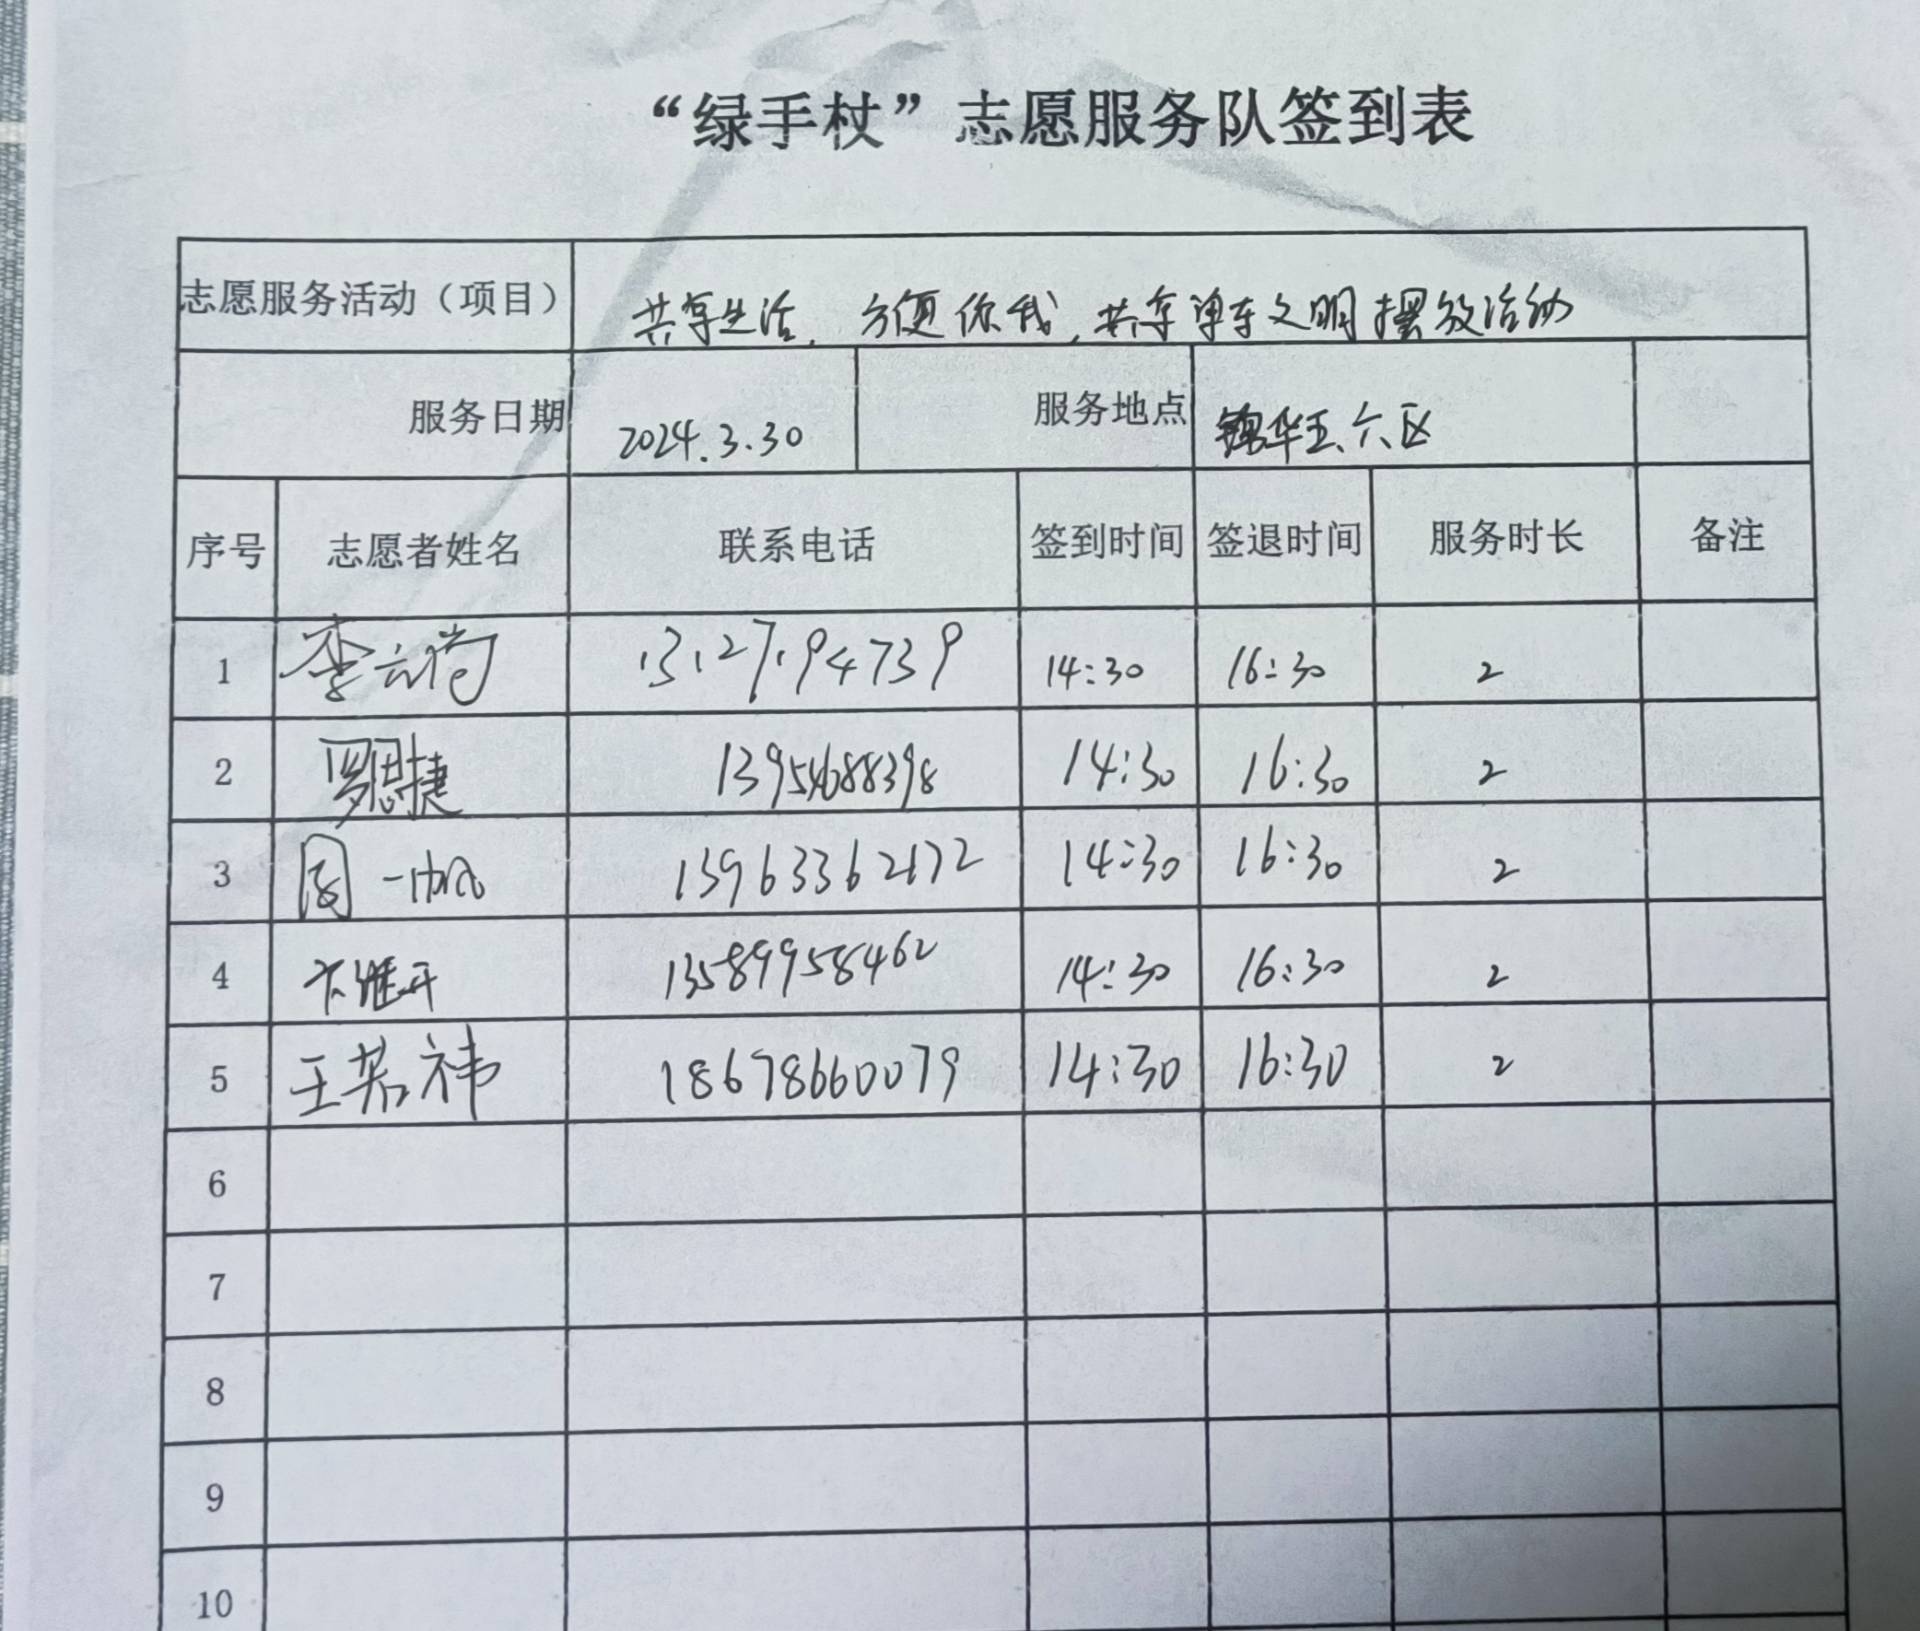 “绿手杖”志愿服务队签到表
志愿服务活动（项目） 共享生活，方便你我，共享单车文明摆放活动
服务日期 2024.3.30 服务地点 锦华五、六区
序号 志愿者姓名 联系电话 签到时间 签退时间 服务时长 备注
1 李 13127194739 14:30 16:30 2
2 罗思捷 14:30 16:30 2
3 周一帆 13963362172 14:30 16:30 2
4 13589958462 14:30 16:30 2
5 王若祎 18678660079 14:30 16:30 2
6
7
8
9
10